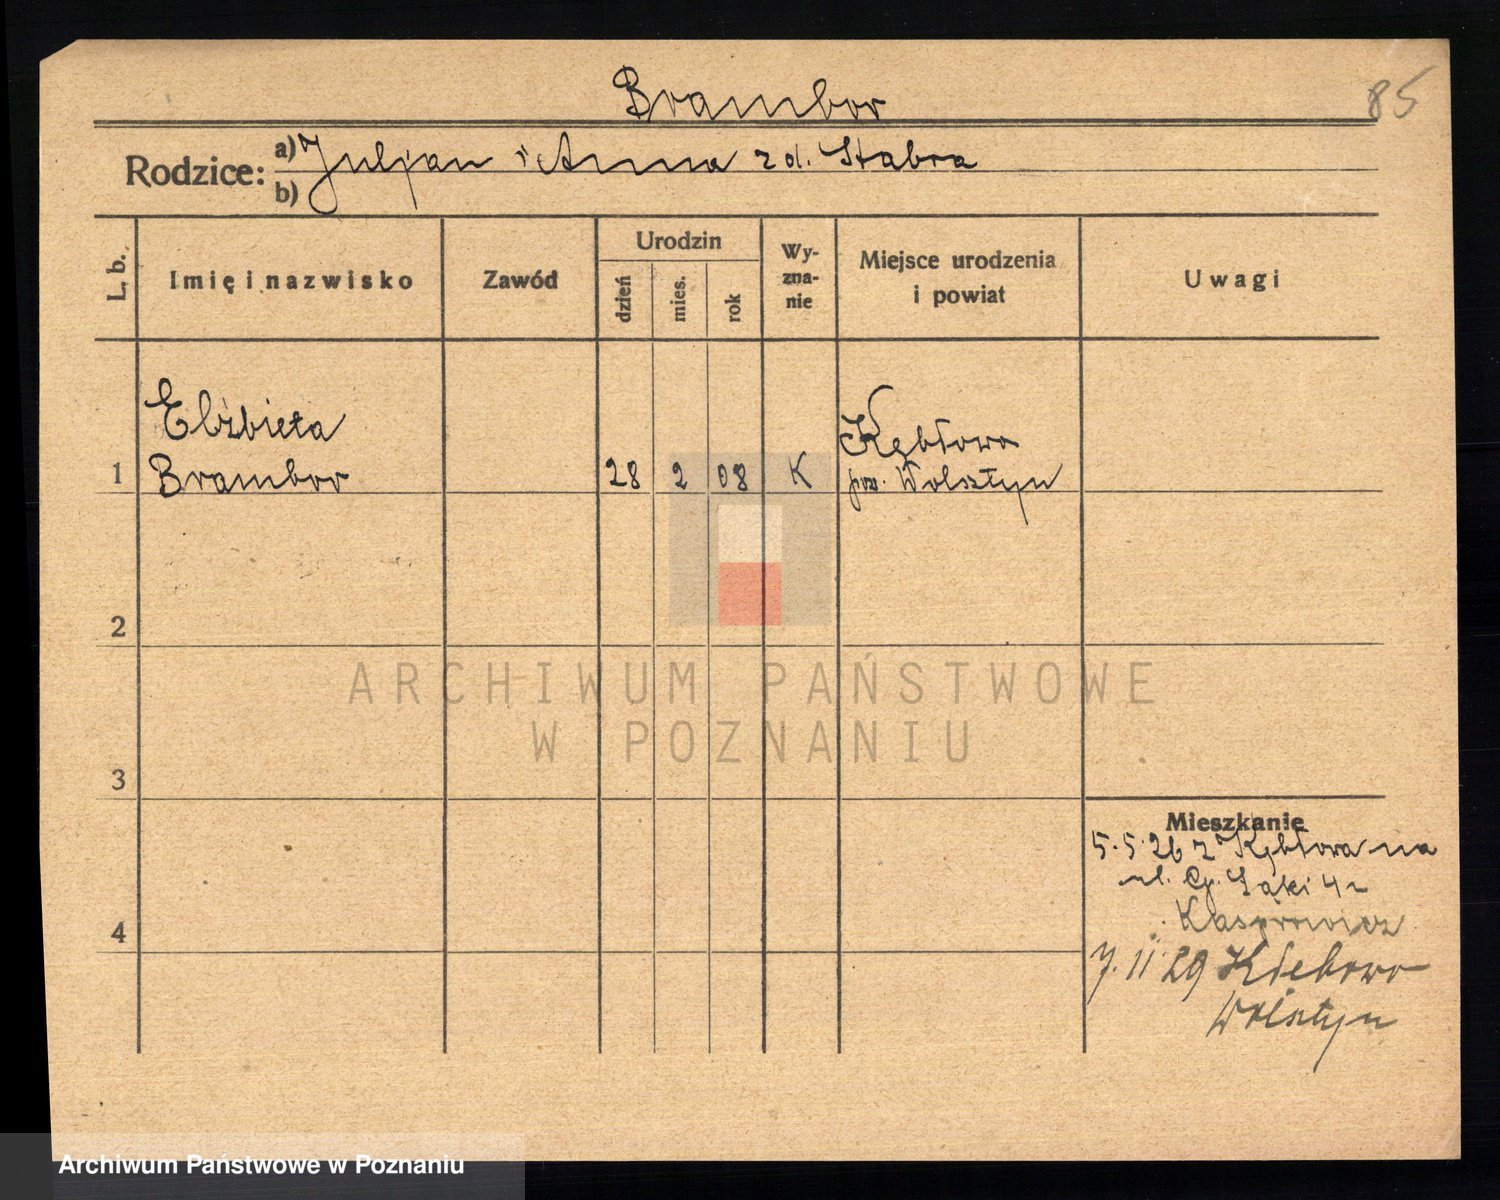 Brambor
85
Rodzice: a) Juljan i Anna z d. Stabra
b)
L. b.
Imię i nazwisko
Zawód
Urodzin
dzień
mies.
rok
Wy-
zna-
nie
Miejsce urodzenia
i powiat
Uwagi
Elżbieta
1 Brambor 28 2 08 K
Kębłowo
pow. Wolsztyn
2
3
4
ARCHIWUM PAŃSTWOWE
W POZNANIU
Mieszkanie
5.5.26 z Kębłowa na
ul. Łąki 4
Kasprowicz
7.11.29 Kiebowo
Wolsztyn
Archiwum Państwowe w Poznaniu